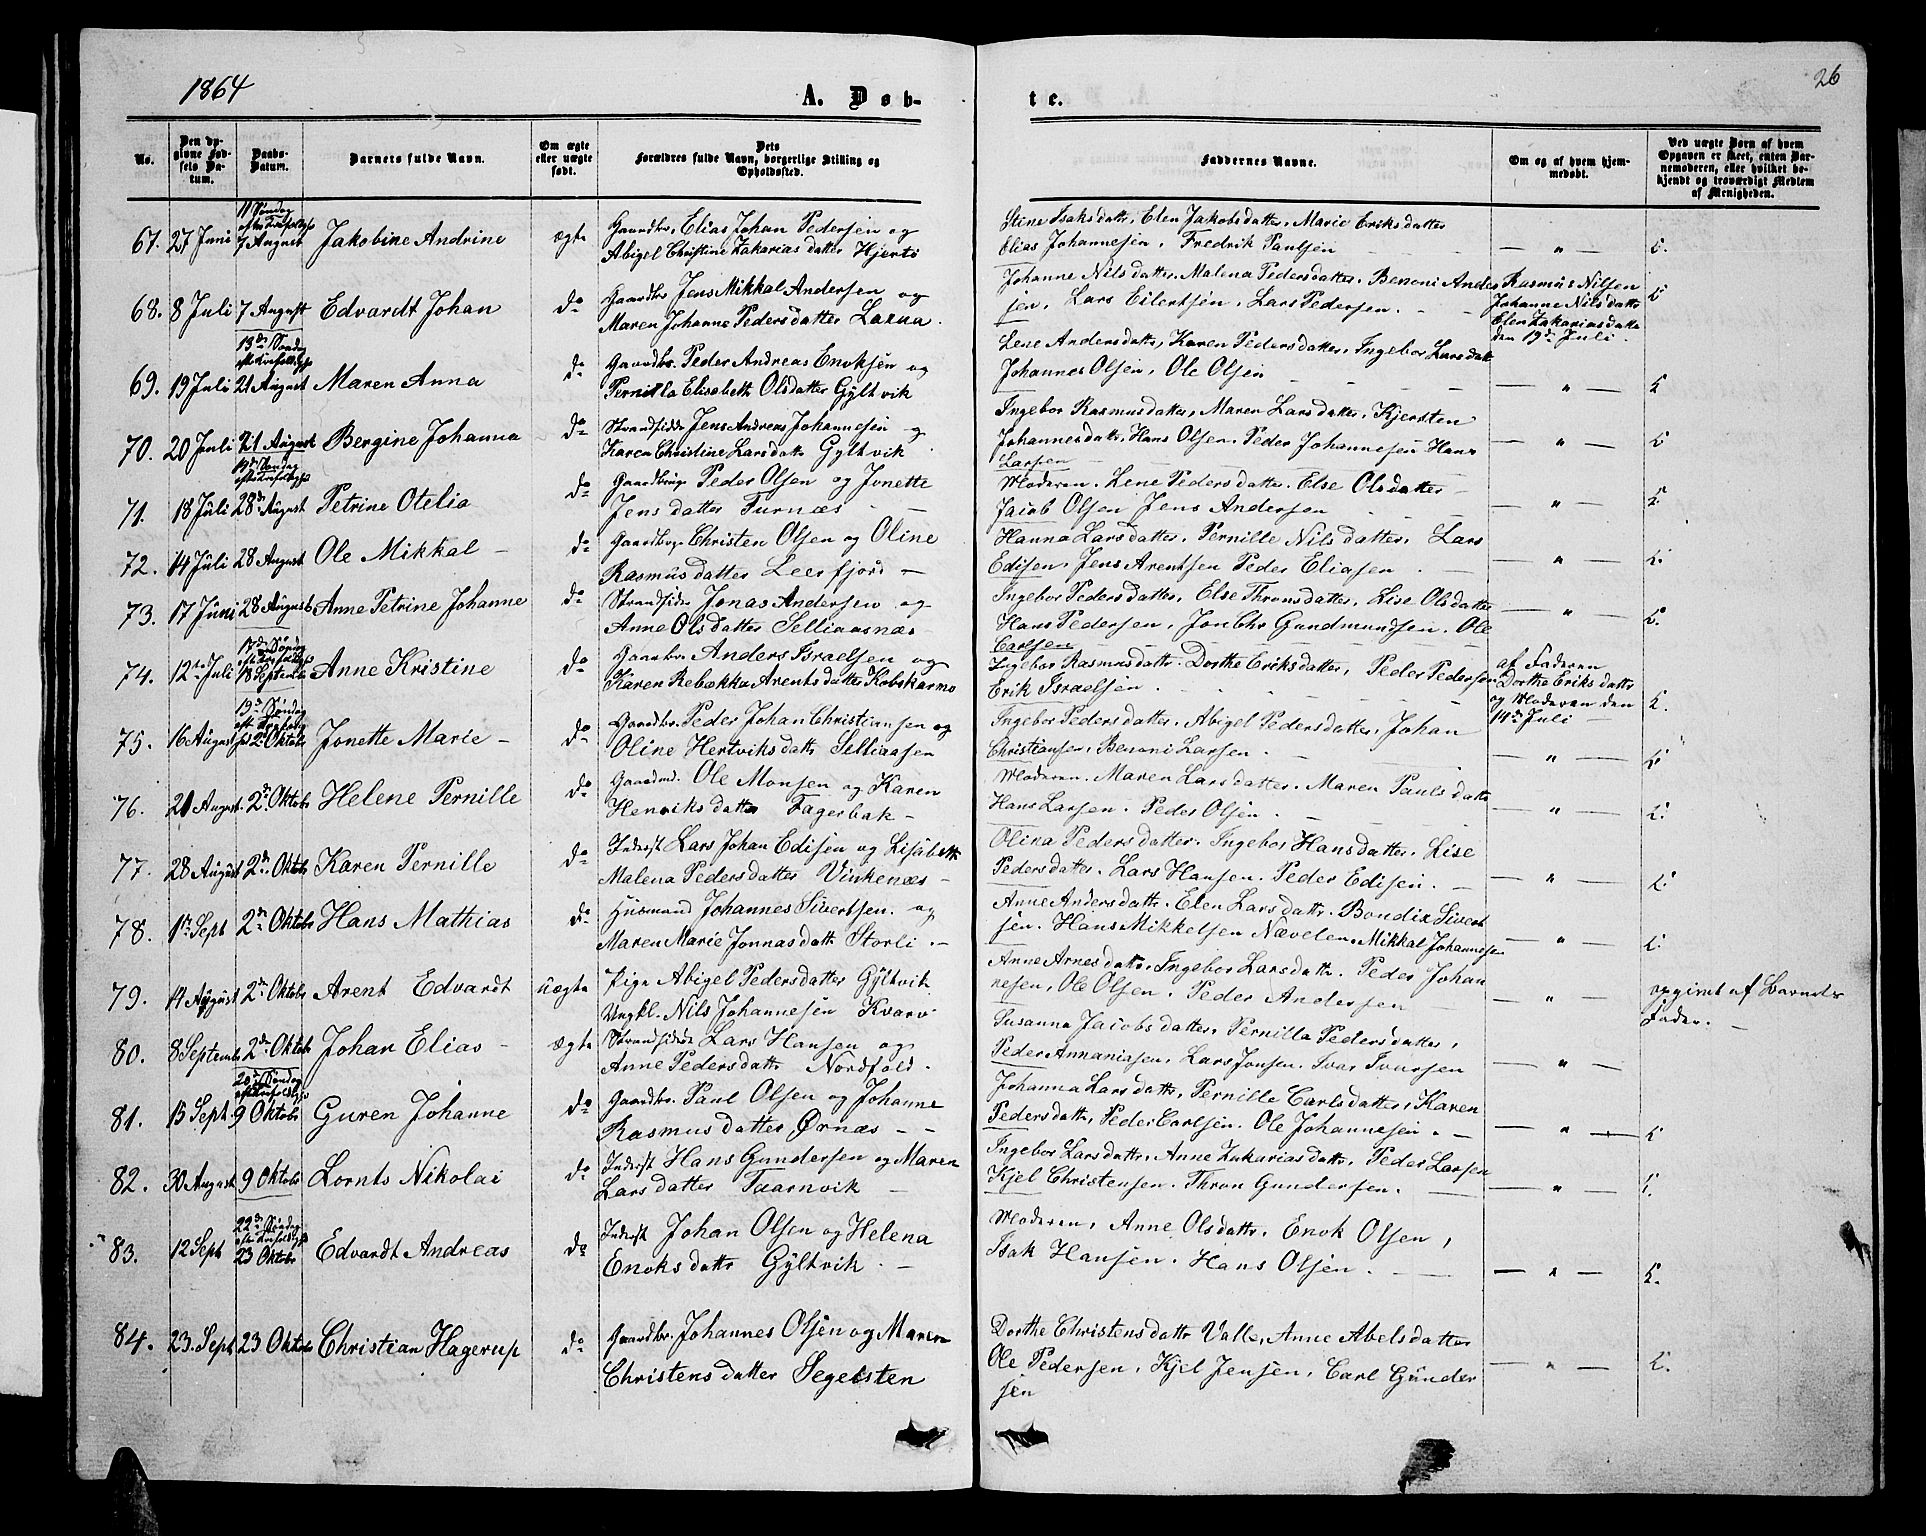 1864
A. Døb-
te.
26
No.
Den opgivne Fødsels Datum.
Daabs-Datum.
Barnets fulde Navn.
Om ægte eller uægte født.
Dets Forældres fulde Navn, borgerlige Stilling og Opholdssted.
Faddernes Navne.
Om og af hvem hjemmedøbt.
Ved uægte Børn af hvem Opgaven er skeet, enten Barnemoderen, eller hvilket bekjendt og troværdigt Medlem af Menigheden.
11 Søndag
67. 27 Juni 7 August Jakobine Andrine ægte Gaardbr. Elias Johan Pedersen og
Abigel Christine Zakariasdatter Hjertø
Stine Isaksdattr, Elen Jakobsdatter, Marie Eriksdatter
Elias Johannesen, Fredrik Paulsen — " —
68. 8 Juli 7 August Edvardt Johan do Gaardbr Jens Mikkal Andersen og
Maren Johanne Pedersdatter Laxaa.
Johanne Nilsdatter, Malena Pedersdatter, Benoni Ander
sen, Lars Eilertsen, Lars Pedersen.
Rasmus Nilsen
Johanne Nilsdatte
Elen Zakariasdatte
den 19de Juli.
13de Søndag
69. 19 Juli 21 August Maren Anna do Gaardbr. Peder Andreas Enoksen og
Pernilla Elisabeth Olsdatter Gyltvik
Lene Andersdatter, Karen Pedersdatter, Ingebor Larsdatt
Johannes Olsen, Ole Olsen — " —
70. 20 Juli 21 August Bergine Johanna do Strandsidder Jens Andreas Johannesen og
Karen Christine Larsdatt Gyltvik
Ingebor Rasmusdatter, Maren Larsdatter, Kjersten
Johannesdatt, Hans Olsen, Peder Johannesen Hans
Larsen — " —
14de Søndag
71. 18 Juli 28de August Petrine Otelia do Gaardbrug Peder Olsen og Jonette
Jensdatter Furnæs
Moderen. Lene Pedersdatter. Else Olsdatter
Jacob Olsen Jens Andersen — " —
72. 14 Juli 28 August Ole Mikkal do Gaardbgr Christen Olsen og Oline
Rasmusdatter Leerfjord
Hanna Larsdatter, Pernille Nilsdatter, Lars
Edisen, Jens Arentsen Peder Eliasen — " —
73. 17 Juni 28 August Anne Petrine Johanne do Strandsidder Jonas Andersen og
Anne Olsdatter Selliaasnæs
Ingebor Pedersdatter, Else Thronsdatter, Lise Olsdatter
Hans Pedersen, Jon Chr Gundmundsen. Ole
Carlsen — " —
17de Søndag
74. 12te Juli 18 Septembr Anne Kristine do Gaardbr Anders Israelsen og
Karen Rebækka Arentsdatter Kobskarmo
Ingebor Rasmusdattr. Dorthe Eriksdatter, Peder Pedersen
Erik Israelsen.
af Faderen
Dorthe Eriksdatter
og Moderen den
14de Juli
19de Søndag
75. 16 August 2de Oktobr Jonette Marie do Gaardbr. Peder Johan Christiansen og
Oline Hertviksdattr Selliaasen
Ingebor Pedersdatter, Abigel Pedersdatter, Johan
Christiansen, Benoni Larsen — " —
76. 21 August. 2de Oktobr Helene Pernille do Gaardmd. Ole Monsen og Karen
Henriksdatter Fagerbak
Moderen. Maren Larsdatter. Maren Paulsdatter
Hans Larsen. Peder Olsen — " —
77. 28 August 2de Oktobr Karen Pernille do Inderst Lars Johan Edisen og Lisabeth
Malena Pedersdatter Vinkenæs
Olina Pedersdatter. Ingebor Hansdatter. Lise
Pedersdatter. Lars Hansen. Peder Edisen. — " —
78. 1ste Sept 2de Oktobr Hans Mathias do Husmand Johannes Sivertsen og
Maren Marie Jonnasdatt Storli
Anne Andersdatter. Elen Larsdatter. Bendix Sivert
sen. Hans Mikkelsen Nævelen. Mikkal Johannesen — " —
79. 14 August 2de Oktobr Arent Edvardt uægte Pige Abigel Pedersdatter Gyltvik
Ungkl. Nils Johannesen Kvarv
Anne Arnesdatter. Ingebor Larsdattr. Peder Johan
nesen, Ole Olsen. Peder Andersen — " —
opgivet af Barnets
Fader.
80. 8 Septembr 2de Oktobr Johan Elias ægte Strandsidder Lars Hansen og
Anne Pedersdattr Nordfold.
Susanna Jacobsdatter, Pernilla Pedersdatter,
Peder Annaniasen, Lars Jonsen, Ivar Ivarsen — " —
20de Søndag
81. 15 Sept 9 Oktobr Guren Johanne do Gaardbr. Paul Olsen og Johanne
Rasmusdatter Ørnæs
Johanna Larsdattr, Pernille Carlsdatter, Karen
Pedersdattr, Peder Carlsen. Ole Johannesen. — " —
82. 30 August 9 Oktobr Lornts Nikolai do Inderst Hans Gundersen og Maren
Larsdatter Taarnvik
Ingebor Larsdatter. Anne Zakariasdatter, Peder Larsen
Kjel Christensen. Thron Gundersen. — " —
22de Søndag
83. 12 Sept 23 Oktobr Edvardt Andreas do Inderst Johan Olsen og Helena
Enoksdattr Gyltvik
Moderen, Anne Olsdatter. Enok Olsen,
Isak Hansen. Hans Olsen. — " —
84. 23. Sept 23 Oktobr Christian Hagerup do Gaardbr. Johannes Olsen og Maren
Christensdatter Segelsten
Dorthe Christensdattr Valle, Anne Abelsdatter
Ole Pedersen, Kjel Jensen, Carl Gunder
sen — " —